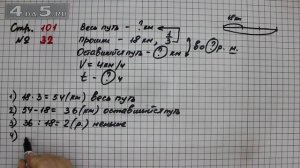 4da5.ru
Стр. 101
№ 32
Весь путь - ? км
Прошли - 18 км, 1/3
Оставшийся путь - ? км
во ? р. м.
V = 4 км/ч
t - ? ч
18км
1) 18·3=54(км) весь путь
2) 54-18= 36(км) оставшийся путь
3) 36:18=2(р.) меньше
4)